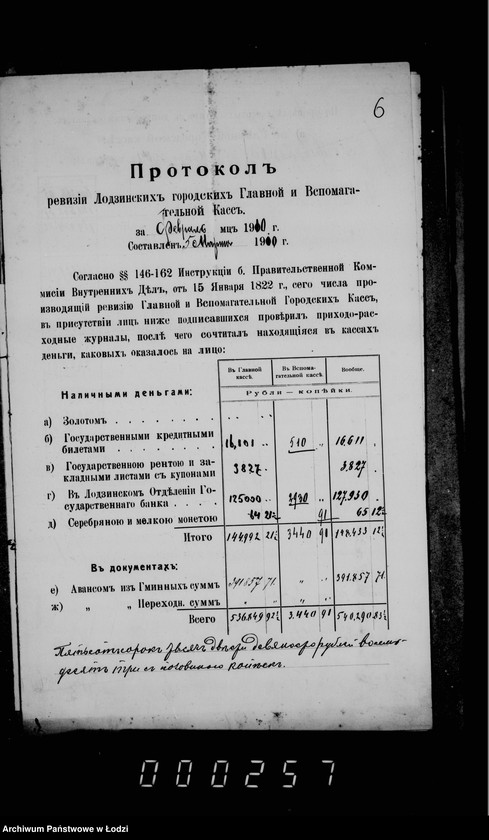 6
Протоколъ
ревизіи Лодзинскихъ городскихъ Главной и Вспомага-
тельной Кассъ.
за Февраль мцъ 1910 г.
Составленъ Марта 1910 г.
Согласно §§ 146-162 Инструкціи б. Правительственной Ком-
мисіи Внутреннихъ Дѣлъ, отъ 15 Января 1822 г., сего числа про-
изводящій ревизію Главной и Вспомагательной Городскихъ Кассъ,
въ присутствіи лицъ ниже подписавшихся провѣрил приходо-рас-
ходные журналы, послѣ чего сочиталъ находящіяся въ кассахъ
деньги, каковыхъ оказалось на лицо:
Въ Главной кассѣ. Въ Вспома-гательной кассѣ Вообще.
Наличными деньгами: Рубли — копѣйки.
а) Золотомъ
б) Государственными кредитными
билетами 16,101 510 16,611
в) Государственною рентою и за-
кладными листами съ купонами 3827 3,827
г) Въ Лодзинскомъ Отдѣленіи Го-
сударственнаго банка 125000 2930 127,930
д) Серебряною и мелкою монетою 64 21½ 91 65 12½
Итого 144992 21½ 3440 91 148433 12½
Въ документахъ:
е) Авансомъ изъ Гминныхъ суммъ 391857 71 „ „ 391.857 71
ж) „ „ Переходн. суммъ „ „ „ „
Всего 536849 92½ 3.440 91 540,290 83½
Пятьсотъ сорокъ тысячъ двѣсти девяносто рублей восемь-
десятъ три съ половиною копѣек.
000257
Archiwum Państwowe w Łodzi